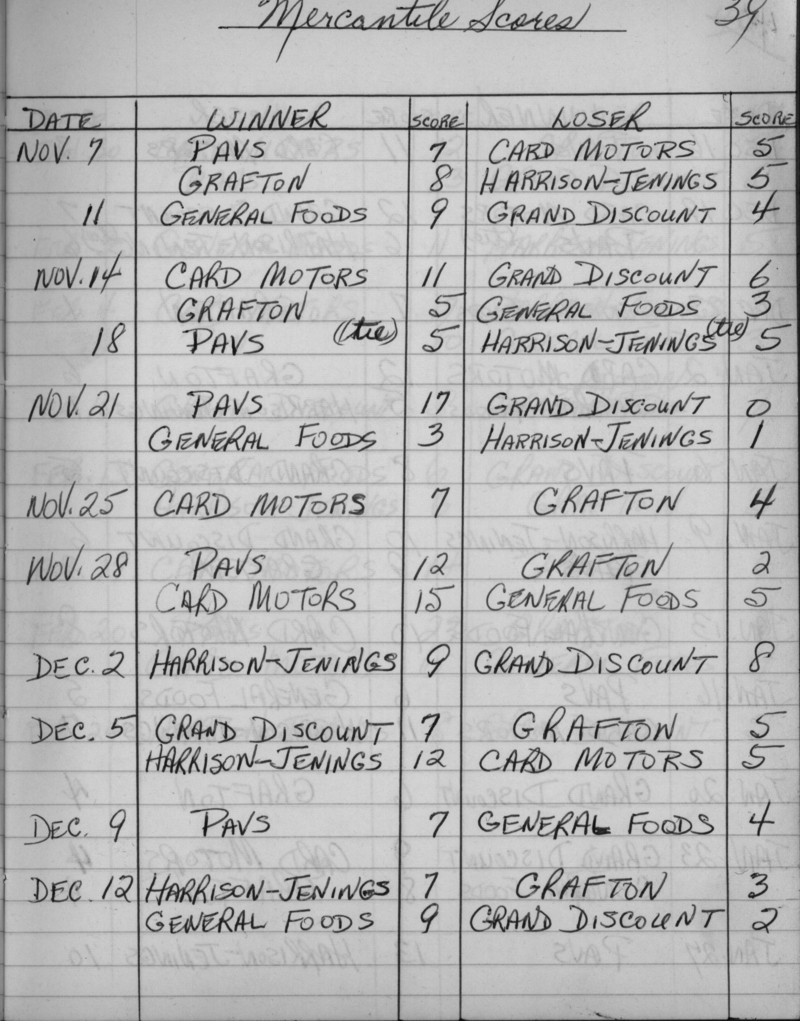 Mercantile Scores 39
DATE WINNER SCORE LOSER SCORE
NOV. 7 PAVS 7 CARD MOTORS 5
GRAFTON 8 HARRISON-JENINGS 5
11 GENERAL FOODS 9 GRAND DISCOUNT 4
NOV. 14 CARD MOTORS 11 GRAND DISCOUNT 6
GRAFTON 5 GENERAL FOODS 3
18 PAVS (tie) 5 HARRISON-JENINGS (tie) 5
NOV. 21 PAVS 17 GRAND DISCOUNT 0
GENERAL FOODS 3 HARRISON-JENINGS 1
NOV. 25 CARD MOTORS 7 GRAFTON 4
NOV. 28 PAVS 12 GRAFTON 2
CARD MOTORS 15 GENERAL FOODS 5
DEC. 2 HARRISON-JENINGS 9 GRAND DISCOUNT 8
DEC. 5 GRAND DISCOUNT 7 GRAFTON 5
HARRISON-JENINGS 12 CARD MOTORS 5
DEC. 9 PAVS 7 GENERAL FOODS 4
DEC. 12 HARRISON-JENINGS 7 GRAFTON 3
GENERAL FOODS 9 GRAND DISCOUNT 2